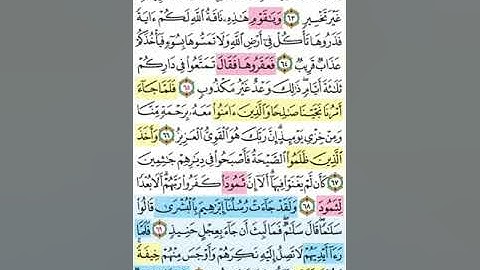 غَيْرَ تَخْسِيرٍ ٦٣ وَيَٰقَوْمِ هَٰذِهِۦ نَاقَةُ ٱللَّهِ لَكُمْ ءَايَةً
فَذَرُوهَا تَأْكُلْ فِىٓ أَرْضِ ٱللَّهِ وَلَا تَمَسُّوهَا بِسُوٓءٍ فَيَأْخُذَكُمْ
عَذَابٌ قَرِيبٌ ٦٤ فَعَقَرُوهَا فَقَالَ تَمَتَّعُوا۟ فِى دَارِكُمْ
ثَلَٰثَةَ أَيَّامٍ ذَٰلِكَ وَعْدٌ غَيْرُ مَكْذُوبٍ ٦٥ فَلَمَّا جَآءَ
أَمْرُنَا نَجَّيْنَا صَٰلِحًا وَٱلَّذِينَ ءَامَنُوا۟ مَعَهُۥ بِرَحْمَةٍ مِّنَّا
وَمِنْ خِزْىِ يَوْمِئِذٍ إِنَّ رَبَّكَ هُوَ ٱلْقَوِىُّ ٱلْعَزِيزُ ٦٦ وَأَخَذَ
ٱلَّذِينَ ظَلَمُوا۟ ٱلصَّيْحَةُ فَأَصْبَحُوا۟ فِى دِيَٰرِهِمْ جَٰثِمِينَ
٦٧ كَأَن لَّمْ يَغْنَوْا۟ فِيهَآ أَلَآ إِنَّ ثَمُودَا۟ كَفَرُوا۟ رَبَّهُمْ أَلَا بُعْدًا
لِّثَمُودَ ٦٨ وَلَقَدْ جَآءَتْ رُسُلُنَآ إِبْرَٰهِيمَ بِٱلْبُشْرَىٰ قَالُوا۟
سَلَٰمًا قَالَ سَلَٰمٌ فَمَا لَبِثَ أَن جَآءَ بِعِجْلٍ حَنِيذٍ ٦٩ فَلَمَّا
رَءَآ أَيْدِيَهُمْ لَا تَصِلُ إِلَيْهِ نَكِرَهُمْ وَأَوْجَسَ مِنْهُمْ خِيفَةً